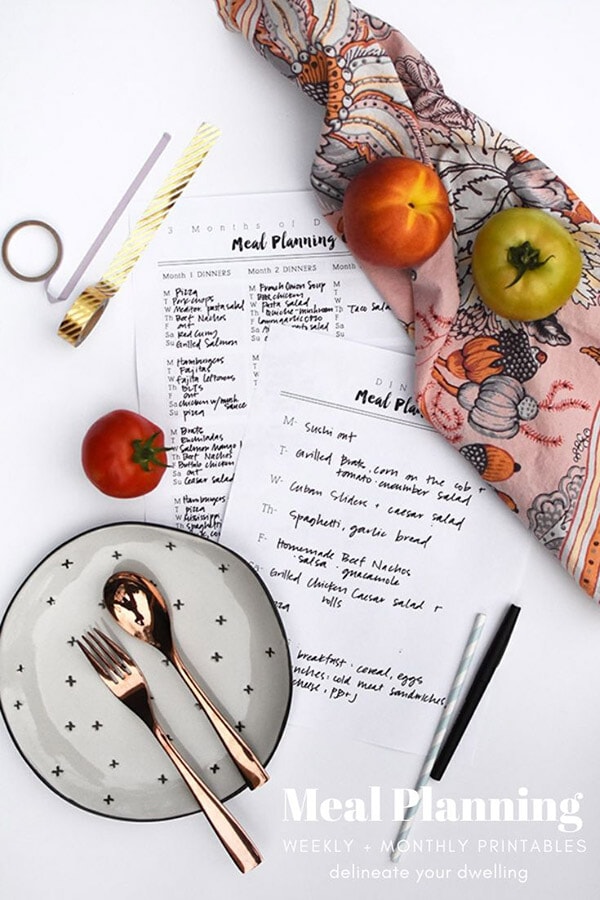 3 Months of D
Meal Planning
Month 1 DINNERS
M Pizza
T Pork chops
W Mediterr. pasta salad
Th Beef Nachos
F out
Sa Red Curry
Su Grilled Salmon
M Hamburgers
T Fajitas
W Fajita leftovers
Th BLTs
F out
Sa chicken w/mush sauce
Su pizza
M Brats
T Enchiladas
W Salmon Mango
Th Beef Nachos
F Buffalo chicken
Sa out
Su Ceasar salad
M Hamburgers
T pizza
Th spaghetti
Month 2 DINNERS
M French Onion Soup
T BBQ chicken
W Pasta Salad
Th Quiche-mushroom
F out
Month 3
Taco Salad
DIN
Meal Pla
M- Sushi out
T- Grilled Brats, corn on the cob +
tomato-cucumber salad
W- Cuban Sliders + caesar salad
Th- Spaghetti, garlic bread
F- Homemade Beef Nachos
salsa · guacamole
Sa- Grilled Chicken Caesar salad +
rolls
zza
breakfast: cereal, eggs
nches: cold meat sandwiches,
cheese, PB+J
Meal Planning
WEEKLY + MONTHLY PRINTABLES
delineate your dwelling